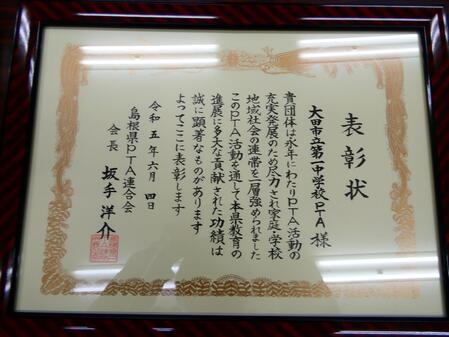 表彰状
大田市立第一中学校PTA 様
貴団体は永年にわたりPTA活動の
充実発展のため尽力され家庭・学校
地域社会の連帯を一層強められました
このPTA活動を通して本県教育の
進展に多大な貢献された功績は
誠に顕著なものがあります
よってここに表彰します
令和五年六月四日
島根県PTA連合会
会長 坂手洋介